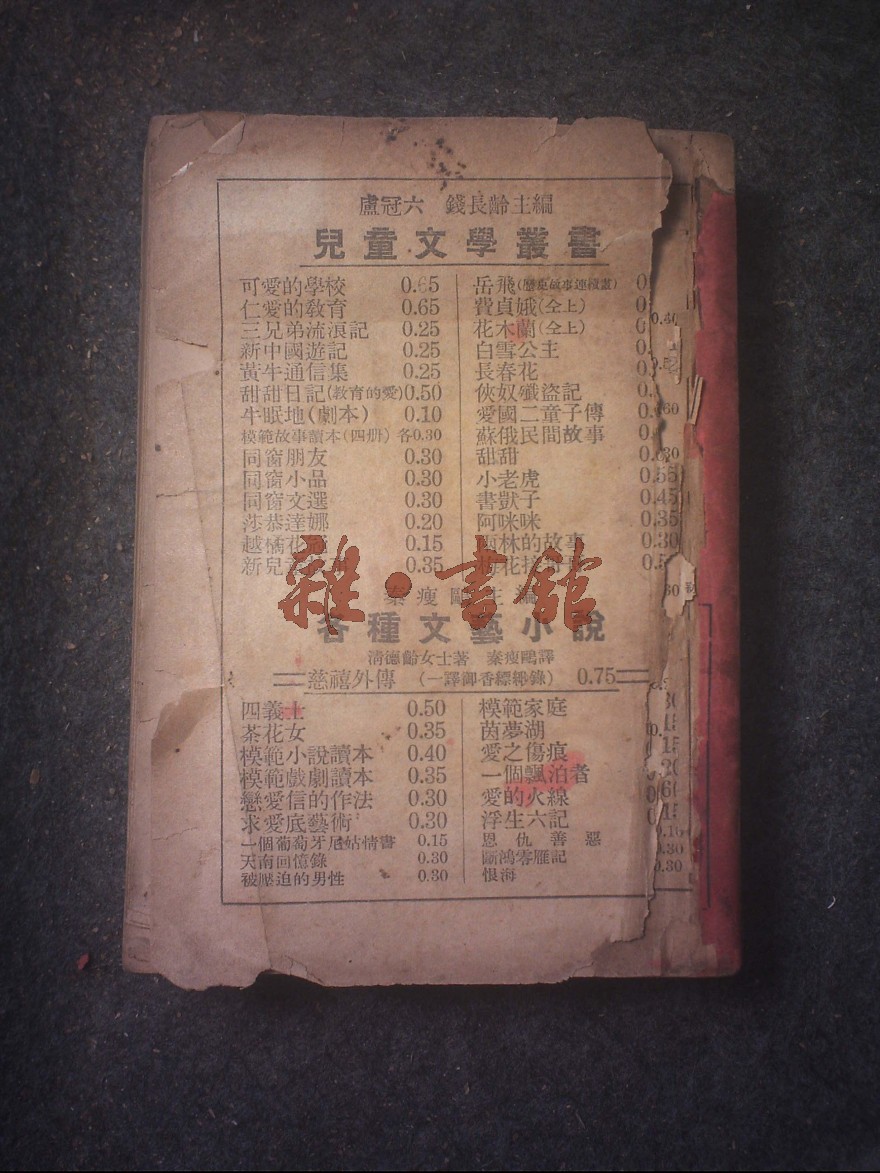 盧冠六 錢長齡主編
兒童文學叢書
可愛的學校 0.65
仁愛的教育 0.65
三兄弟流浪記 0.25
新中國遊記 0.25
黃牛通信集 0.25
甜甜日記(教育的愛) 0.50
牛眠地(劇本) 0.10
模範故事讀本(四册) 各0.30
同窗朋友 0.30
同窗小品 0.30
同窗文選 0.30
莎恭達娜 0.20
越橘花 0.15
新兒童 0.35
岳飛(歷史故事連續畫)
費貞娥(仝上)
花木蘭(仝上)
白雪公主
長春花
俠奴殲盜記
愛國二童子傳
蘇俄民間故事
甜甜
小老虎 0.55
書獃子 0.45
阿咪咪 0.35
林的故事 0.30
雜·書館
秦瘦鷗主編
各種文藝小說
清德齡女士著 秦瘦鷗譯
慈禧外傳 (一譯御香縹緲錄) 0.75
四義士 0.50
茶花女 0.35
模範小說讀本 0.40
模範戲劇讀本 0.35
戀愛信的作法 0.30
求愛底藝術 0.30
一個葡萄牙尼姑情書 0.15
天南回憶錄 0.30
被壓迫的男性 0.30
模範家庭
茵夢湖
愛之傷痕
一個飄泊者
愛的火線
浮生六記
恩仇善惡
斷鴻零雁記
恨海